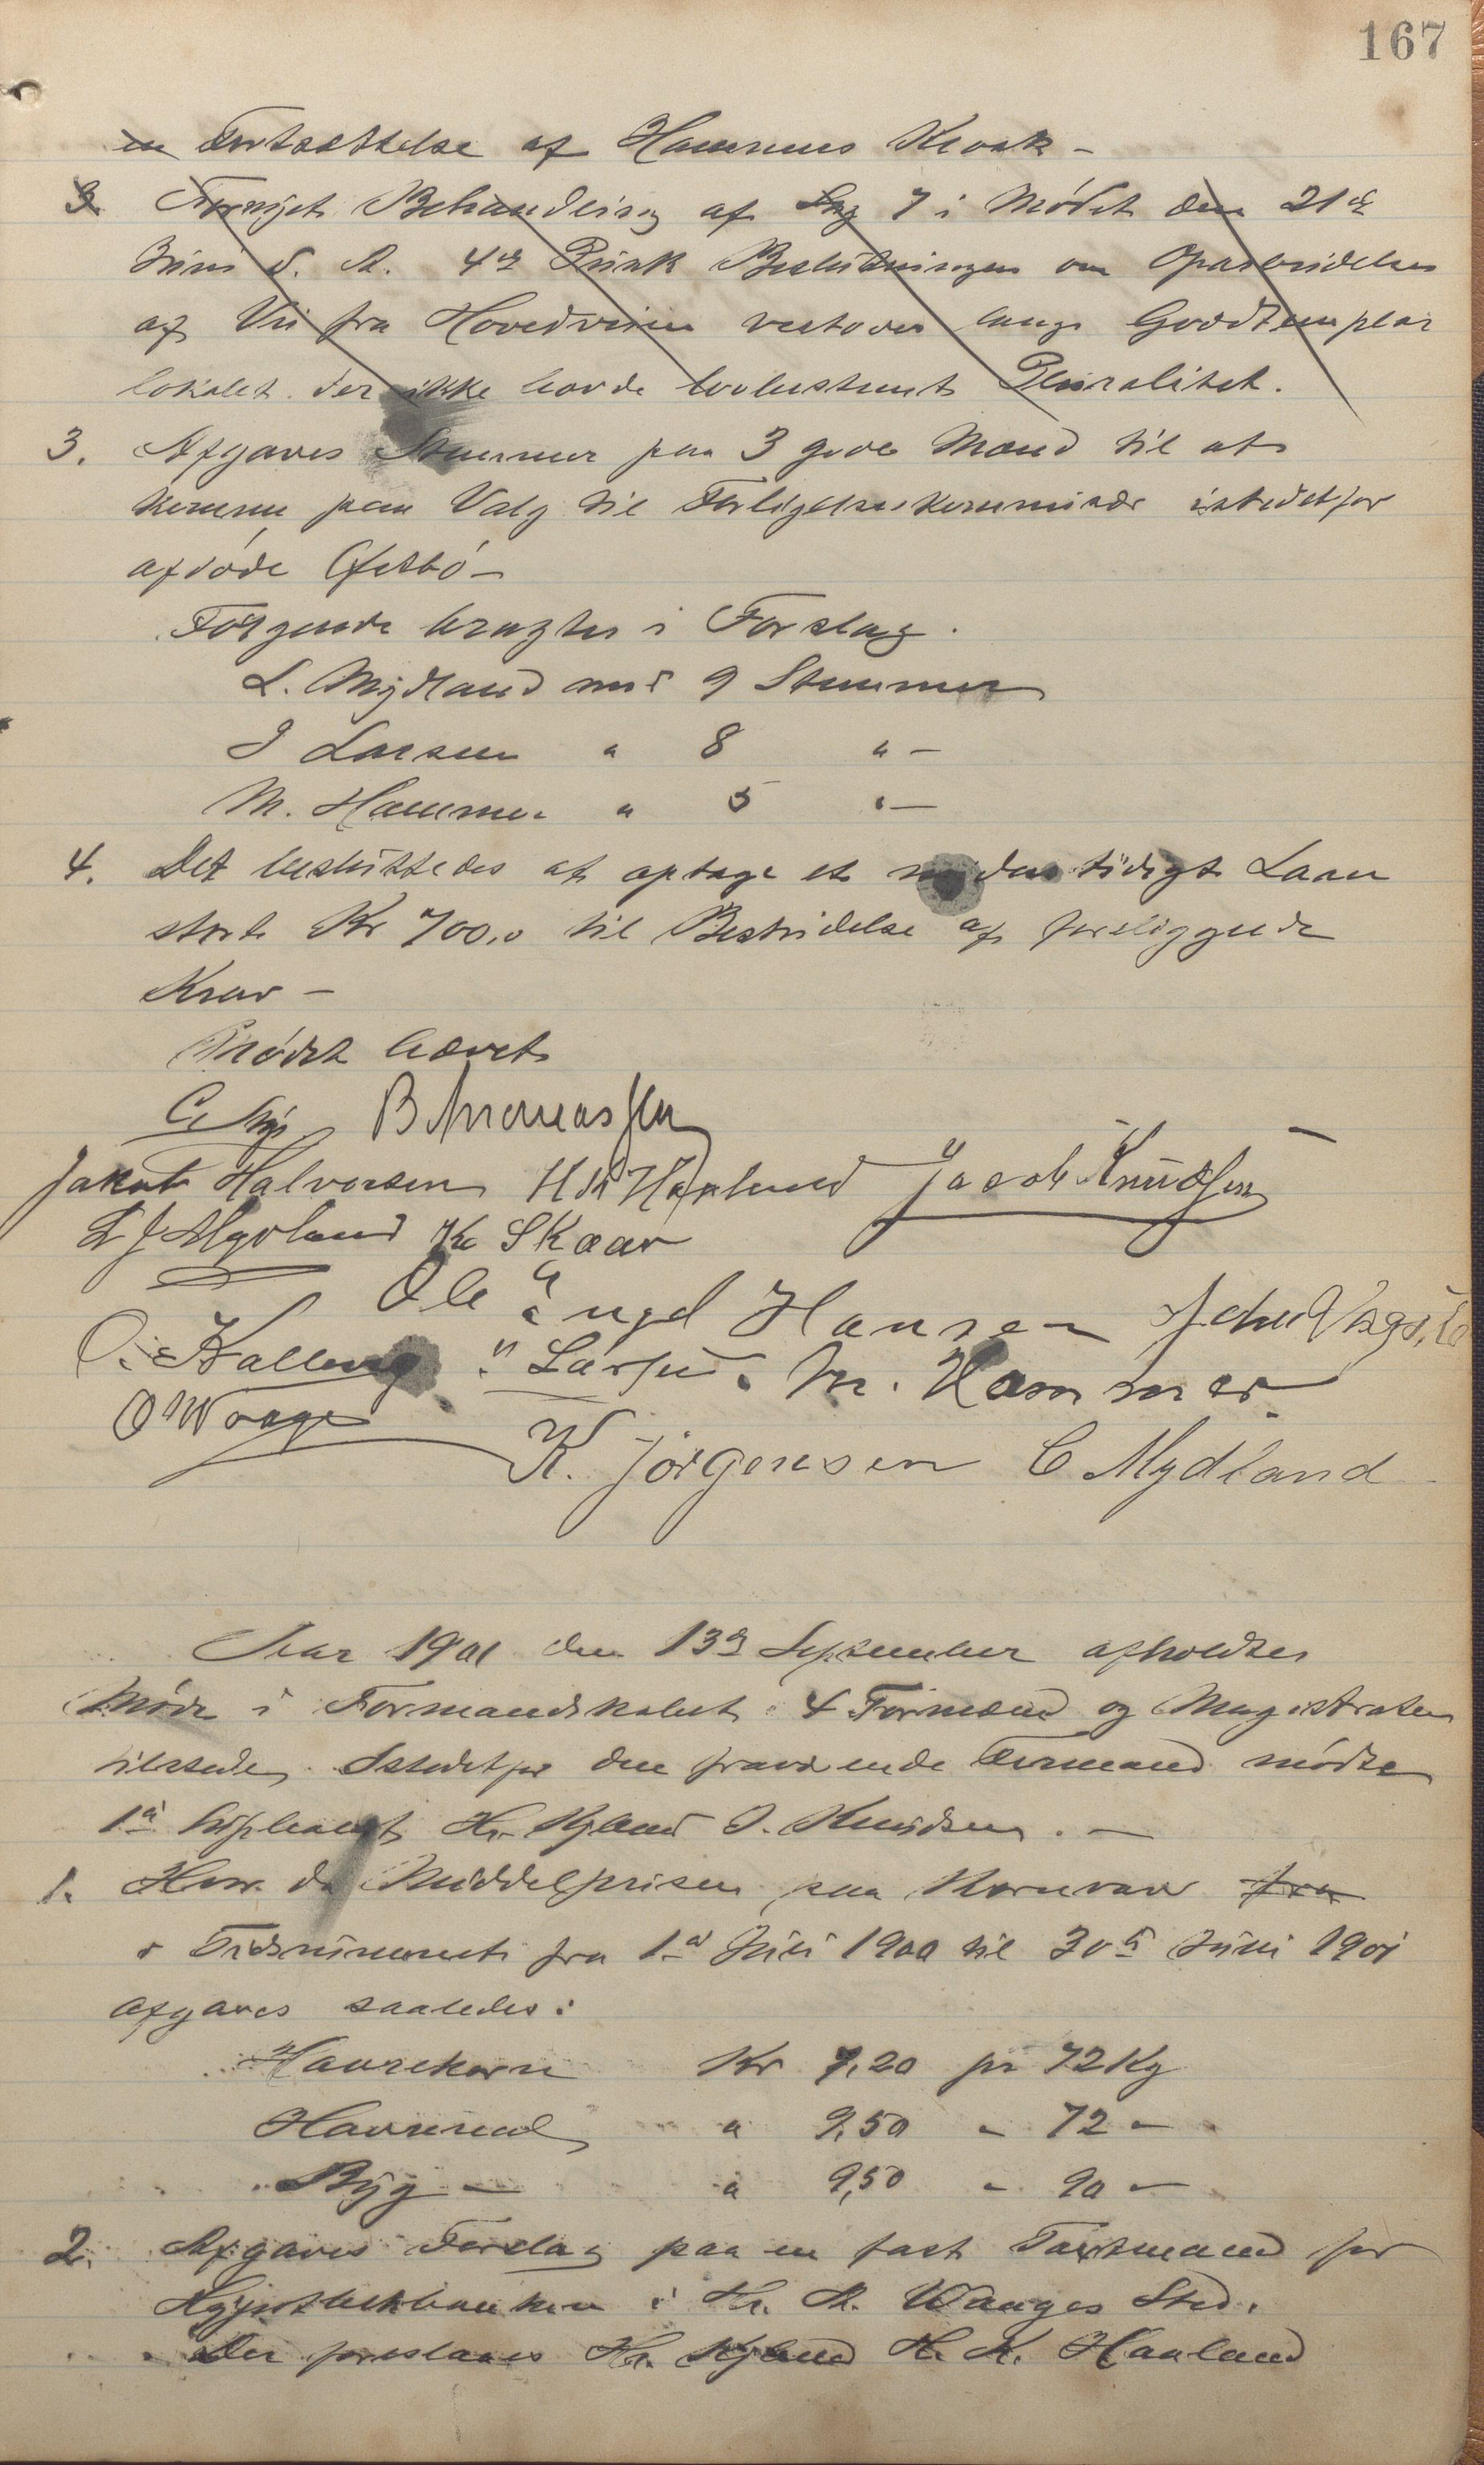 167
en Fortsættelse af Hammers Kloak -
3. Fornyet Behandling af Sag 7 i Mødet den 21de
Juni d. A. 4de Punk Beslutningen om Oparbeidelse
af Vei fra Hovedveien vestover langs Goodtemplar
lokalet der ikke havde lovbestemt Pluralitet.
3. Afgaves Stemmer paa 3 gode Mænd til at
komme paa Valg til Forligelseskommisær istedetfor
afdøde Ofstbø -
Følgende bragtes i Forslag.
L. Mydland med 9 Stemmer
J Larsen " 8 " -
M. Hammer " 5 " -
4. Det besluttedes at optage et midlertidigt Laan
stort Kr 700,0 til Bestridelse af foreliggende
Krav -
Mødet hævet
B Andreassen
Jakob Halvorsen H K Haaland Jacob Knudsen
L J Mydland Kr Skaar
Ole Engel Hansen
O. Kallevig J. Larsen. M. Hammer
O Waage
K. Jørgensen C Mydland
Aar 1901 den 13de September afholdtes
Møde i Formandskabet. 4 Formænd og Magistraten
tilstede. Istedetfor den fraværende Formand mødte
1ste Supleant Hr. Kjbmd J. Knudsen. -
1. Hvor da Middelprisen paa Kornvarer fra
i Tidsrummet fra 1ste Juli 1900 til 30te Juni 1901
afgaves saaledes:
Havrekorn Kr 7,20 pr 72 Kg
Havremel " 9,50 " 72 -
Byg - " 9,50 " 90 -
2. Afgaves Forslag paa en fast Taxtmand for
Hypothekbanken i Hr. A. Waages Sted.
Der foreslaaes Hr. Kjbmd H. K. Haaland